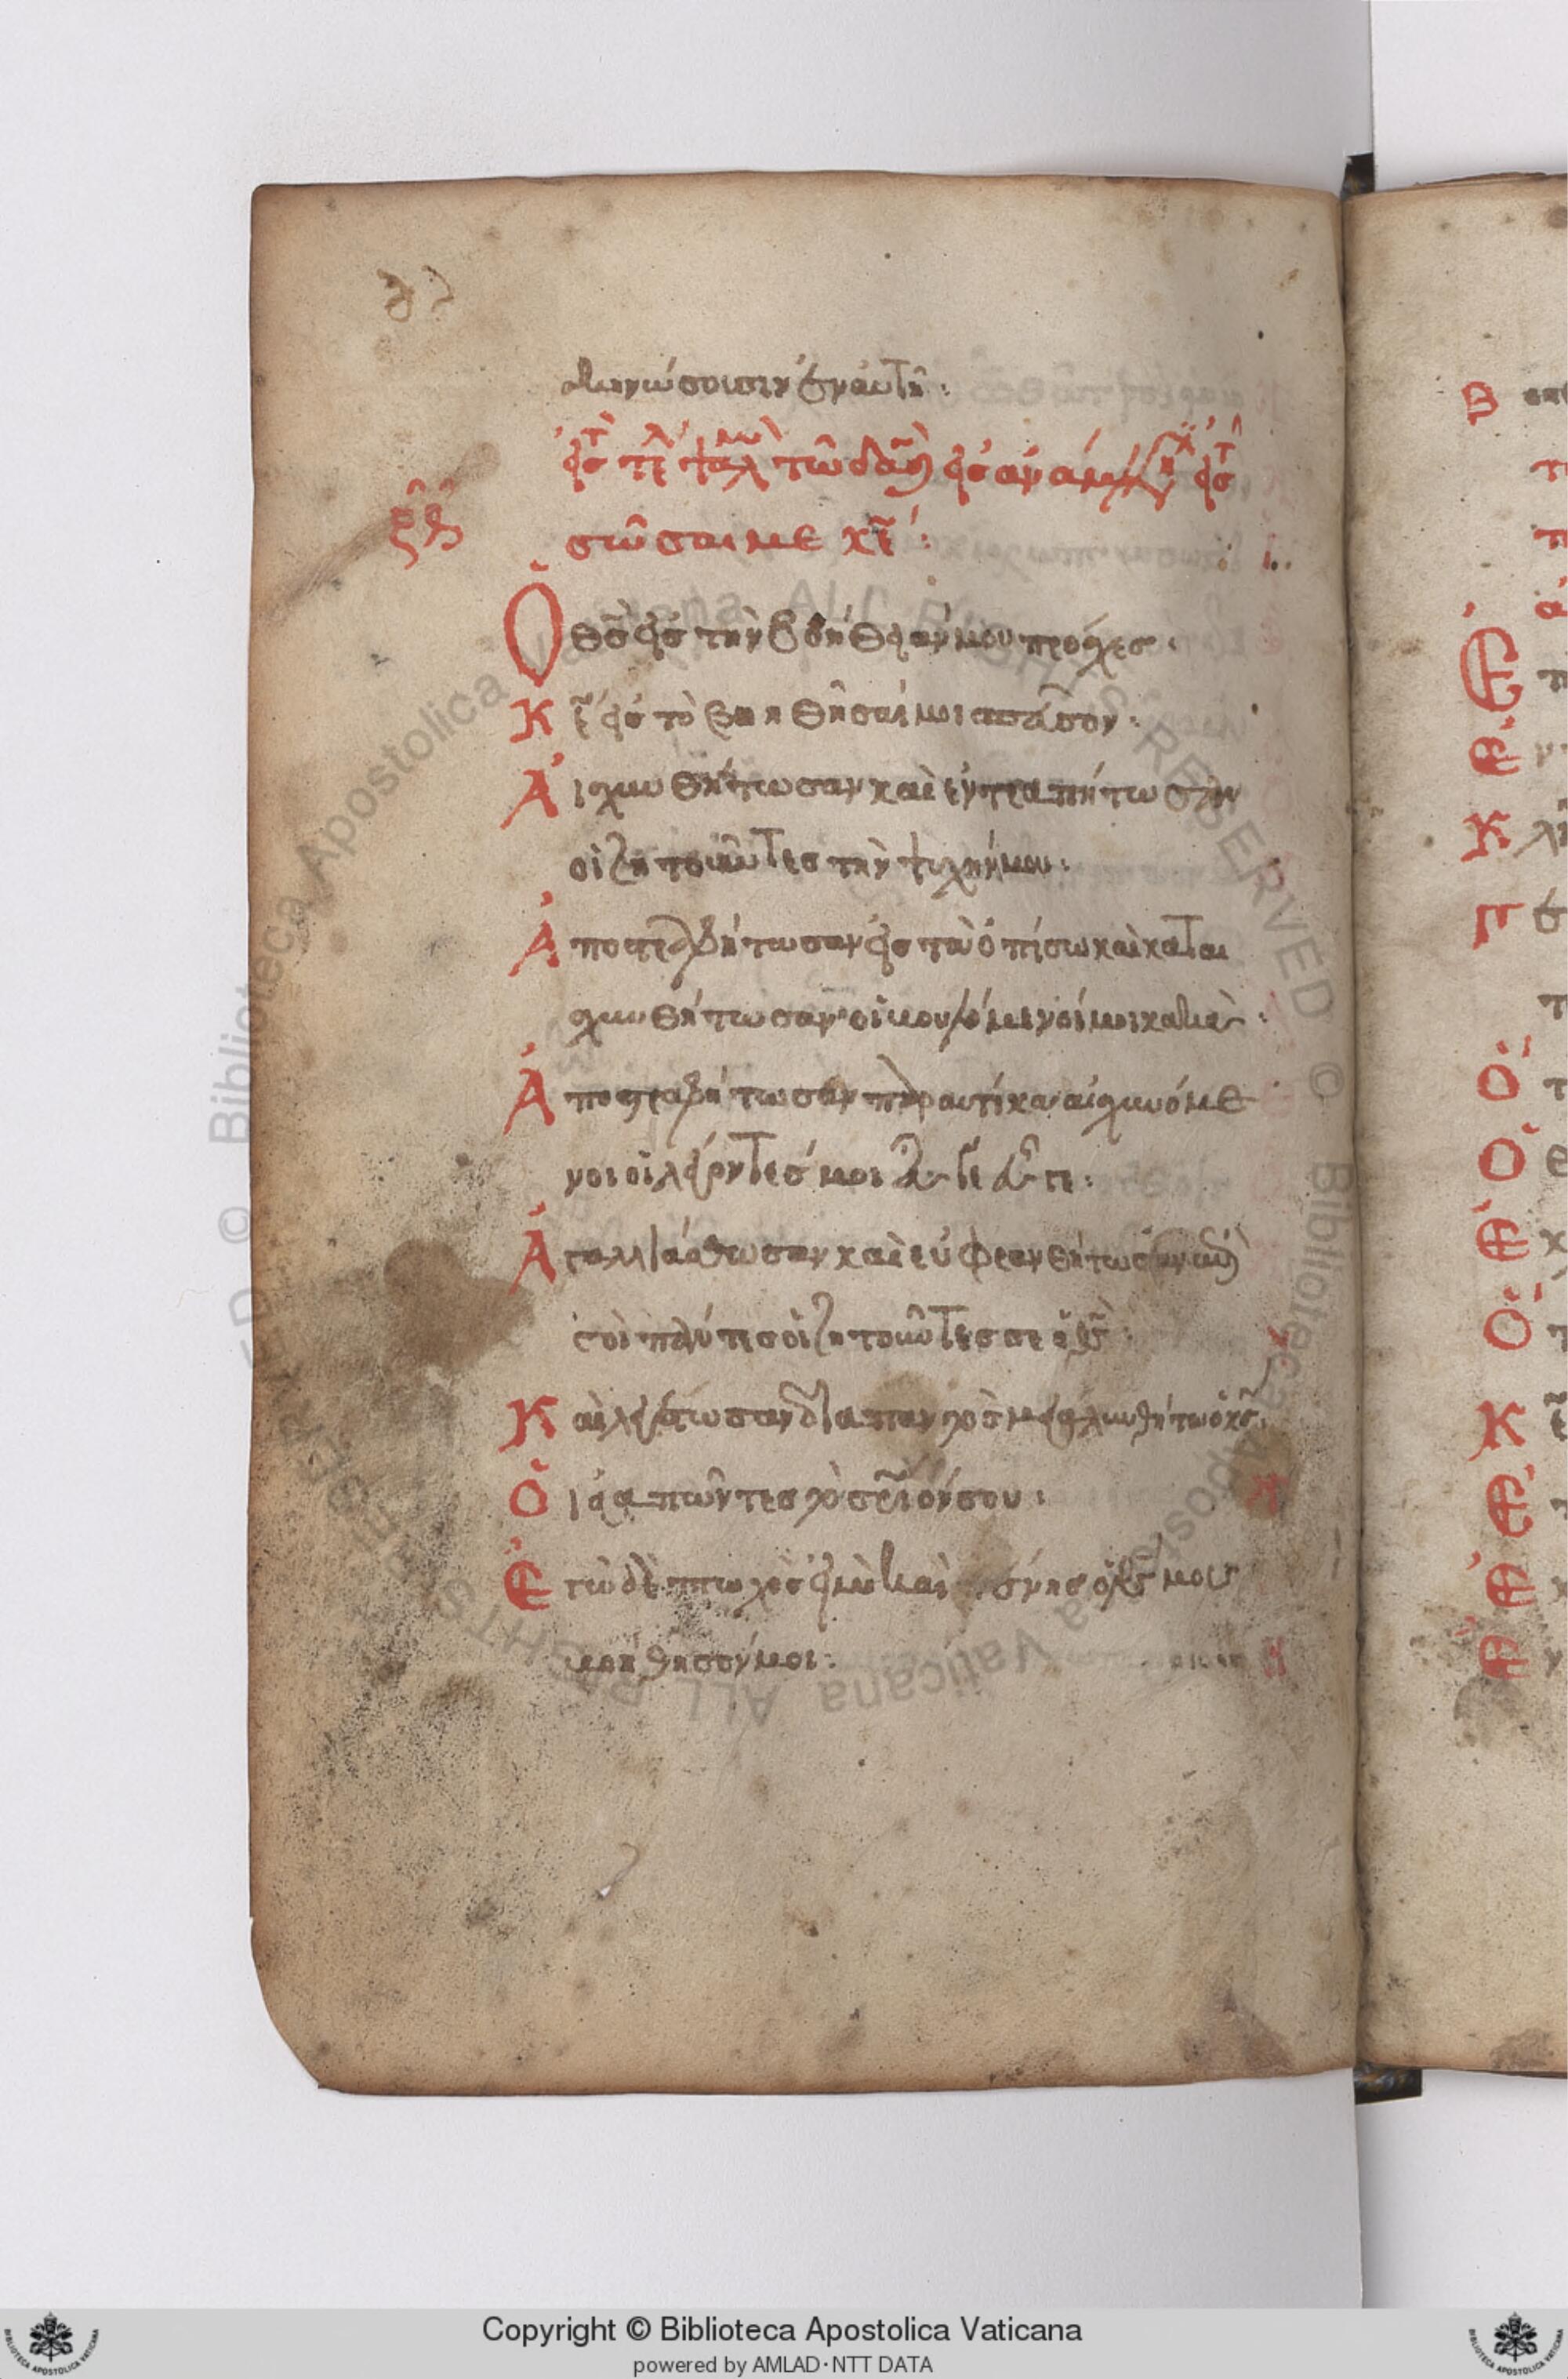 σκηνώσουσιν ἐν αὐτῆ:
εἰς τὸ τέλ ψαλμὸ τῶ δαδ̃ εἰς ἀνάμνησιν εἰς τ
σῶσαι με κν̃:
ξθ
Ὁ θς̃ εἰς τὴν βοήθειάν μου πρόσχες:
Κε̃ εἰς τὸ βοηθῆσαί μοι σπεῦσον:
Αἰσχυνθήτωσαν καὶ ἐντραπήτωσαν
οἱ ζητοῦντες τὴν ψυχήν μου:
Ἀποστραφήτωσαν εἰς τὰ ὀπίσω καὶ καται
σχυνθήτωσαν οἱ βουλόμενοί μοι κακὰ:
Ἀποστραφήτωσαν παραυτίκα αἰσχυνόμε
νοι οἱ λέγοντές μοι εὖγε εὖγε:
Ἀγαλλιάσθωσαν καὶ εὐφρανθήτωσαν ἐπὶ
σοὶ πάντες οἱ ζητοῦντες σε ὁ θς̃:
Καὶ λεγέτωσαν διαπαντὸς μεγαλυνθήτω ὁ κς̃
Οἱ ἀγαπῶντες τὸ σρ̃ιόν σου:
Ἐγὼ δὲ πτωχὸς εἰμὶ καὶ πένης ὁ θς̃ μου
βοήθησόν μοι:
Copyright © Biblioteca Apostolica Vaticana
powered by AMLAD·NTT DATA